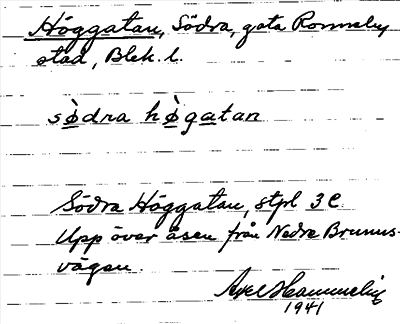 Höggatan, Södra, gata Ronneby
stad, Blek. l.
södra hö̀gatan
Södra Höggatan, stpl 3 C.
Upp över åsen från Nedre Brunns-
vägen.
Axel
1941